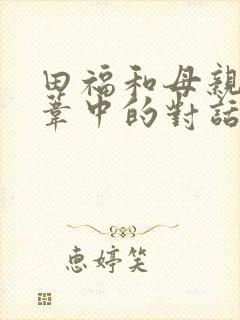 田福和母親
葦中的對話
惠婷笑